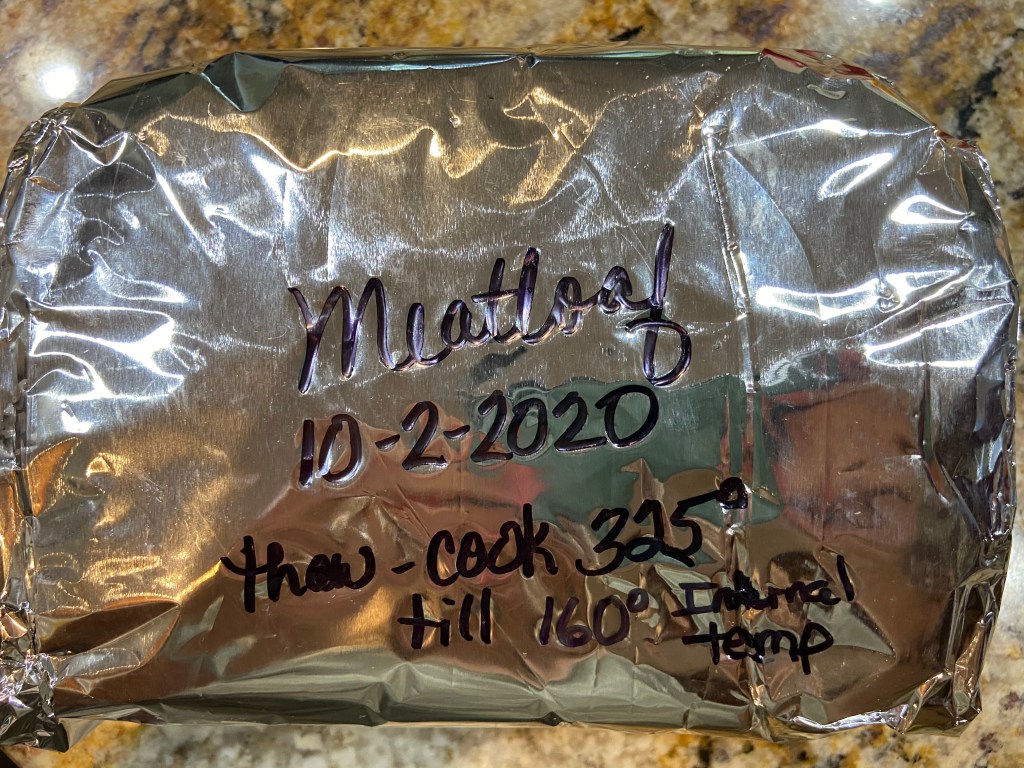 Meatloaf
10-2-2020
thaw - cook 325°
till 160° Internal
temp